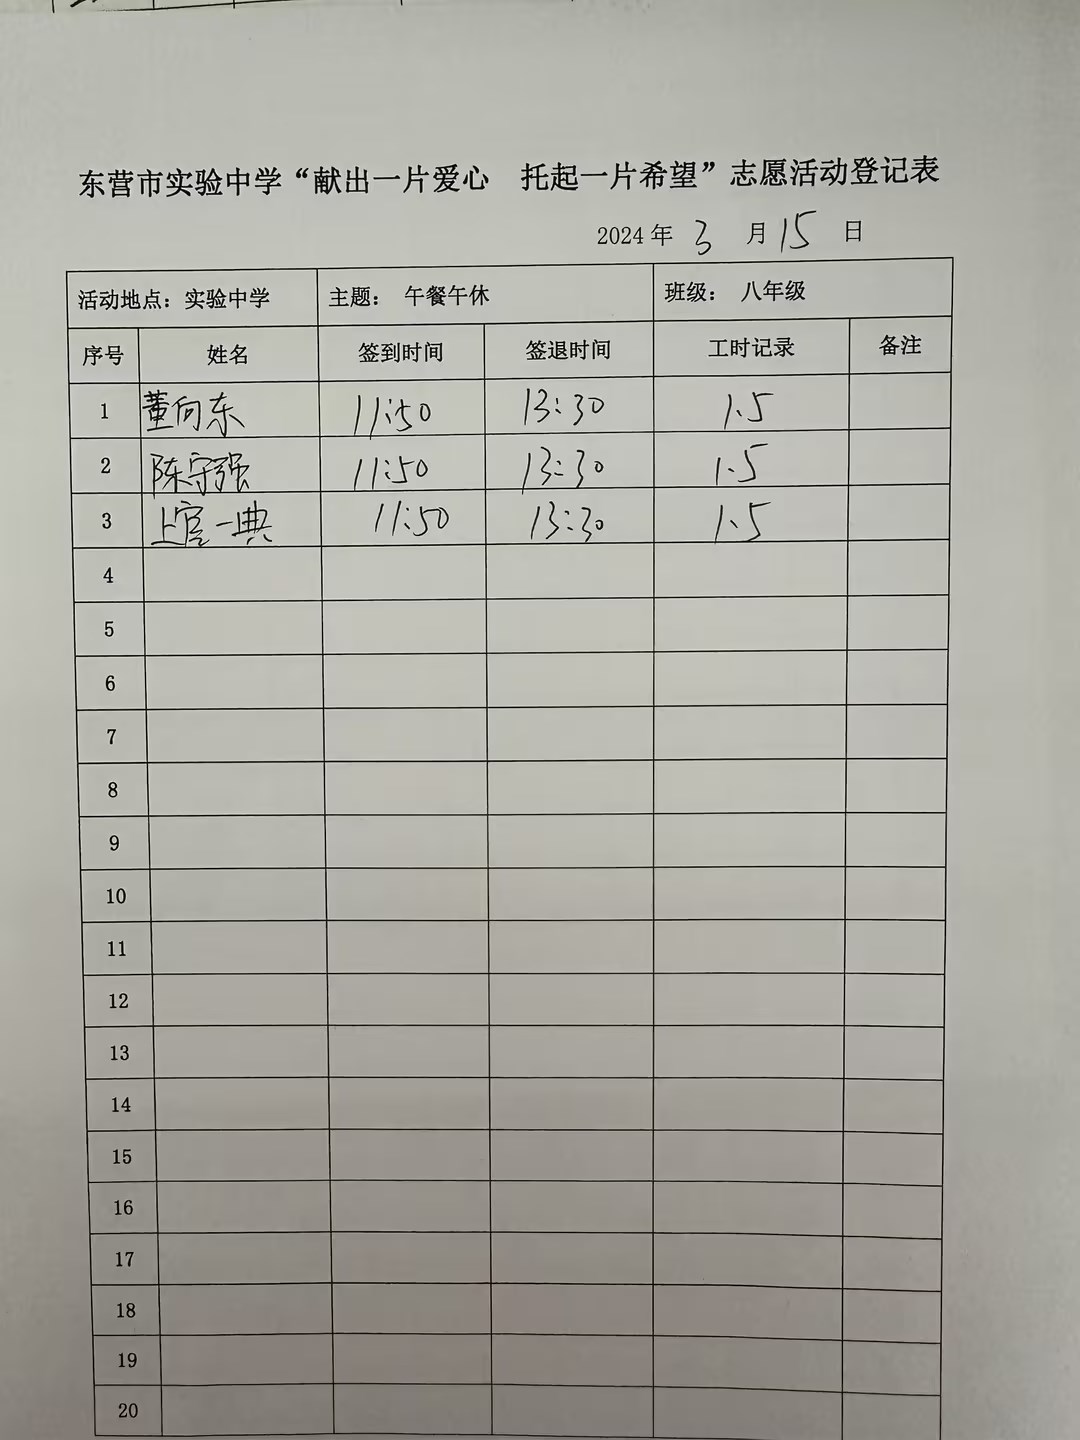 东营市实验中学“献出一片爱心 托起一片希望”志愿活动登记表
2024 年 3 月 15 日
活动地点：实验中学 主题： 午餐午休 班级： 八年级
序号 姓名 签到时间 签退时间 工时记录 备注
1 董向东 11:50 13:30 1.5
2 陈守强 11:50 13:30 1.5
3 上官一典 11:50 13:30 1.5
4
5
6
7
8
9
10
11
12
13
14
15
16
17
18
19
20